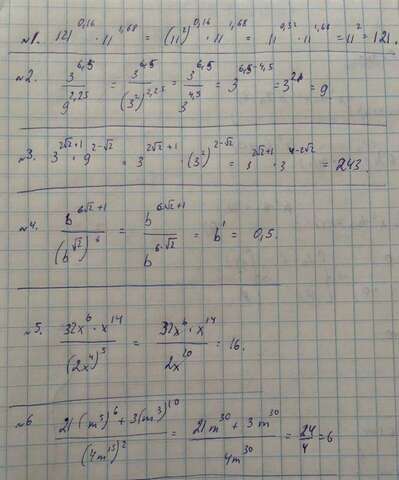 №1. 121^0,16 · 11^1,68 = (11²)^0,16 · 11^1,68 = 11^0,32 · 11^1,68 = 11² = 121.
№2. 3^6,5 / 9^2,25 = 3^6,5 / (3²)^2,25 = 3^6,5 / 3^4,5 = 3^6,5-4,5 = 3² = 9
№3. 3^2√2+1 · 9^2-√2 = 3^2√2+1 · (3²)^2-√2 = 3^2√2+1 · 3^4-2√2 = 243.
№4. b^6√2+1 / (b^√2)^6 = b^6√2+1 / b^6·√2 = b¹ = 0,5.
№5. 32x^6 · x^14 / (2x^4)^5 = 32x^6 · x^14 / 2x^20 = 16.
№6 21(m^5)^6 + 3(m^3)^10 / (4m^15)^2 = 21m^30 + 3m^30 / 4m^30 = 24/4 = 6